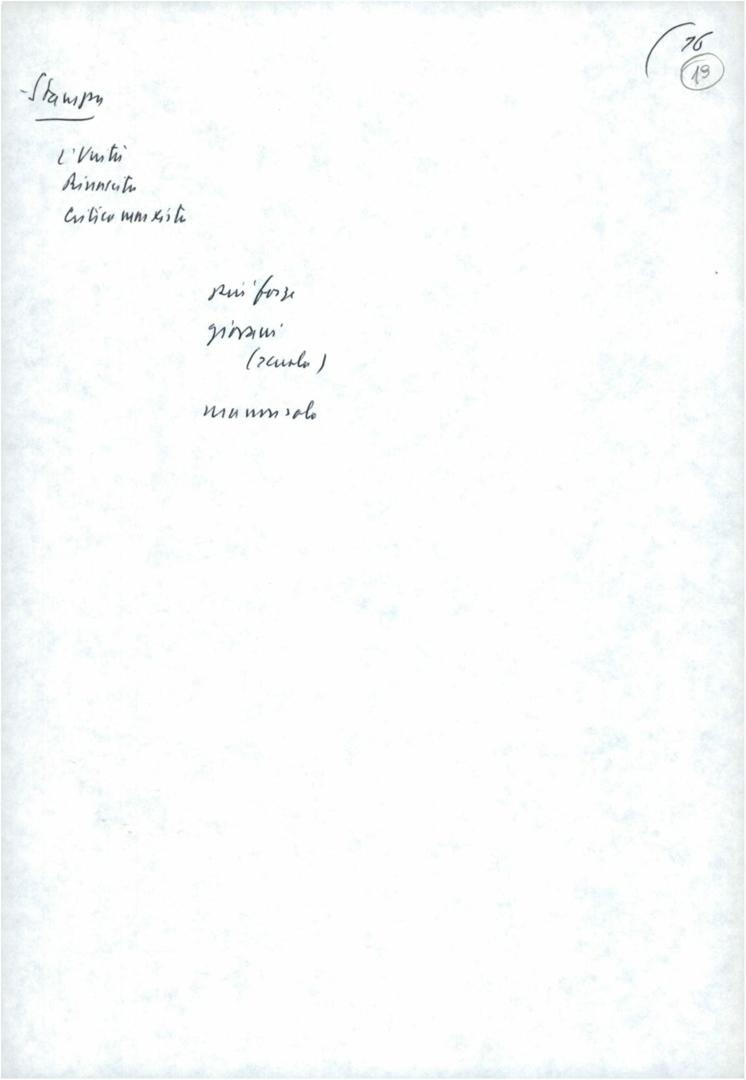 76
19
- Stampa
L'Unità
Rinascita
Critica marxista
più forze
giovani
(scuola)
ma non solo